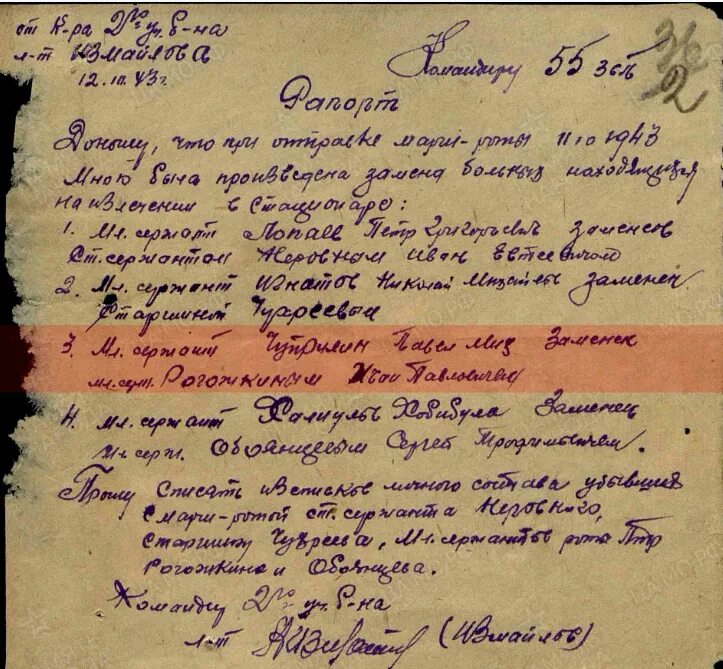 от к-ра 2го уч. б-на
л-т Измайлова
12.10.43г.
Командиру 55 зсп
32
Рапорт
Доношу, что при отправке марш-роты 11.10.1943
Мною была произведена замена больных находящихся
на излечении в стационаре:
1. Мл. сержант Лопаев Петр Григорьевич заменен
Ст. сержантом Неровным Иван Евтеевичом
2. Мл. сержант Игнатов Николай заменен
Старшиной Чудреевым
3. Мл. сержант Чуприлин Павел Мих Заменен
мл. серж. Рогожкиным Павловичем
4. мл. сержант Халиулов Хобибула Заменен
мл. серж. Обоянцевым Сергей Трофимовичем.
Прошу списать из списков личного состава убывших
с марш-ротой ст. сержанта Неровного,
старшину Чудреева, мл. сержантов
Рогожкина и Обоянцева.
Командир 2го уч. б-на
л-т (Измайлов)